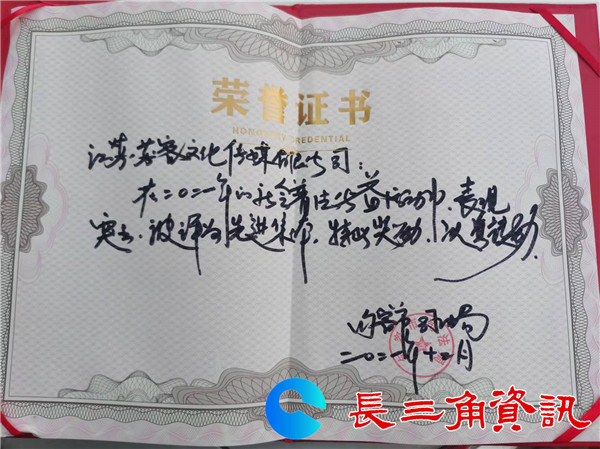 荣誉证书
CREDENTIAL
江苏文化传媒有限公司：
在二〇二一年的社会普法公益活动中，表现
突出，被评为先进集体，特此奖励，以资鼓励。
句容市司法局
二〇二一年十二月
長三角資訊